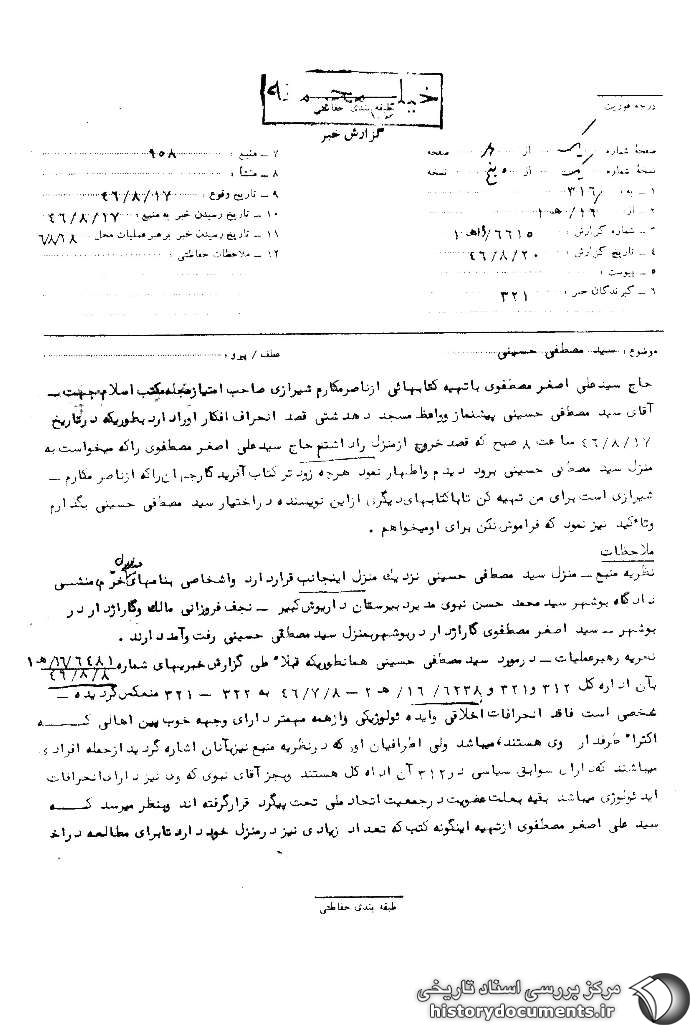 خیلی محرمانه
طبقه بندی حفاظتی
گزارش خبر
درجه فوریت
صفحهٔ شماره : یک از ۲ صفحه
نسخهٔ شماره : یک از پنج نسخه
۱ ـ به : ۳۱۶
۲ ـ از : ۱۶/هـ ۱
۳ ـ شماره گزارش : ۶۶۱۵/۱۶هـ ۱
۴ ـ تاریخ گزارش : ۴۶/۸/۲۰
۵ ـ پیوست :
۶ ـ گیرندگان خبر : ۳۲۱
۷ ـ منبع : ۹۵۸
۸ ـ منشأ :
۹ ـ تاریخ وقوع : ۴۶/۸/۱۷
۱۰ ـ تاریخ رسیدن خبر به منبع : ۴۶/۸/۱۷
۱۱ ـ تاریخ رسیدن خبر برهبر عملیات محل : ۶/۸/۱۸
۱۲ ـ ملاحظات حفاظتی :
موضوع : سید مصطفی حسینی
عطف / پیرو :
حاج سیدعلی اصغر مصطفوی باتهیه کتابهائی ازناصرمکارم شیرازی صاحب امتیازمجله مکتب اسلام جهت ـ
آقای سید مصطفی حسینی پیشنماز وواعظ مسجد دهدشتی قصد انحراف افکار اورادارد بطوریکه درتاریخ
۴۶/۸/۱۷ ساعت ۸ صبح که قصد خروج ازمنزل راداشتم حاج سیدعلی اصغر مصطفوی راکه میخواست به
منزل سید مصطفی حسینی برود دیدم واظهار نمود هرچه زودتر کتاب آفریدگارجهان راکه ازناصر مکارم ـ
شیرازی است برای من تهیه کن تاباکتابهای دیگری ازاین نویسنده دراختیار سید مصطفی حسینی بگذارم
وتاکید نیز نمود که فراموش نکن برای اومیخواهم .
ملاحظات
نظریه منبع ـ منزل سید مصطفی حسینی نزدیک منزل اینجانب قراردارد واشخاصی بنامهای خرّم منشی
دادگاه بوشهر سید محمد حسن نبوی مدیر دبیرستان داریوش کبیر ـ نجف فروزانی مالک وگاراژدار در
بوشهر ـ سید اصغر مصطفوی گاراژدار دربوشهربمنزل سید مصطفی حسینی رفت وآمددارند .
نظریه رهبرعملیات ـ درمورد سید مصطفی حسینی همانطوریکه قبلاً طی گزارش خبریهای شماره ۶۴۸۱/۱۶/هـ ۱
۴۶/۸/۸
بآن اداره کل ۳۱۲ و۳۲۱ و ۶۲۳۸/۱۶/هـ ۲ ـ ۴۶/۷/۸ به ۳۲۲ ـ ۳۲۱ منعکس گردیده ـ
شخصی است فاقد انحرافات اخلاقی وایده ئولوژیکی وازهمه مهمتر دارای وجهه خوب بین اهالی کـه
اکثراً طرفدار وی هستند، میباشد ولی اطرافیان اور که درنظریه منبع نیزبآنان اشاره گردید ازجمله افرادی
میباشند که دارای سوابق سیاسی در۳۱۲ آن اداره کل هستند وبجز آقای نبوی که وی نیز دارای انحرافات
ایدئولوژی میباشد بقیه بعلت عضویت درجمعیت اتحاد ملی تحت پیگرد قرارگرفته اند وبنظر میرسد کـه
سید علی اصغر مصطفوی ازتهیه اینگونه کتب که تعداد زیادی نیز درمنزل خود دارد تابرای مطالعه دراخ
طبقه بندی حفاظتی
مرکز بررسی اسناد تاریخی
historydocuments.ir